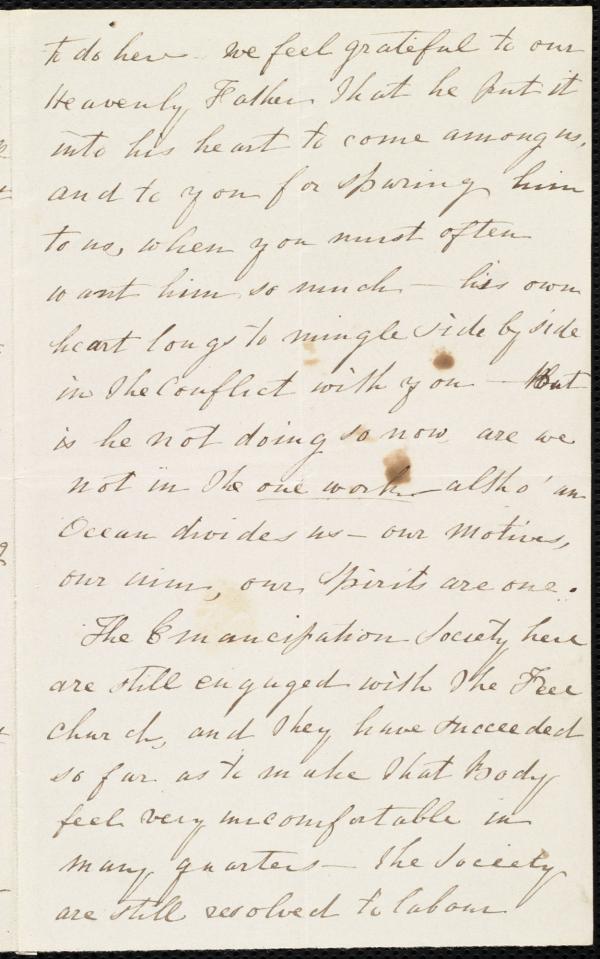 to do here - we feel grateful to our
Heavenly Father that he put it
into his heart to come among us,
and to you for sparing him
to us, when you must often
want him so much - his own
heart longs to mingle side by side
in the Conflict with you - But
is he not doing so now are we
not in the one work altho' an
Ocean divides us - our Motives,
our aim, our Spirits are one.
The Emancipation Society here
are still engaged with the Free
Church, and they have succeeded
so far as to make that Body
feel very uncomfortable in
many quarters - the Society
are still resolved to labour